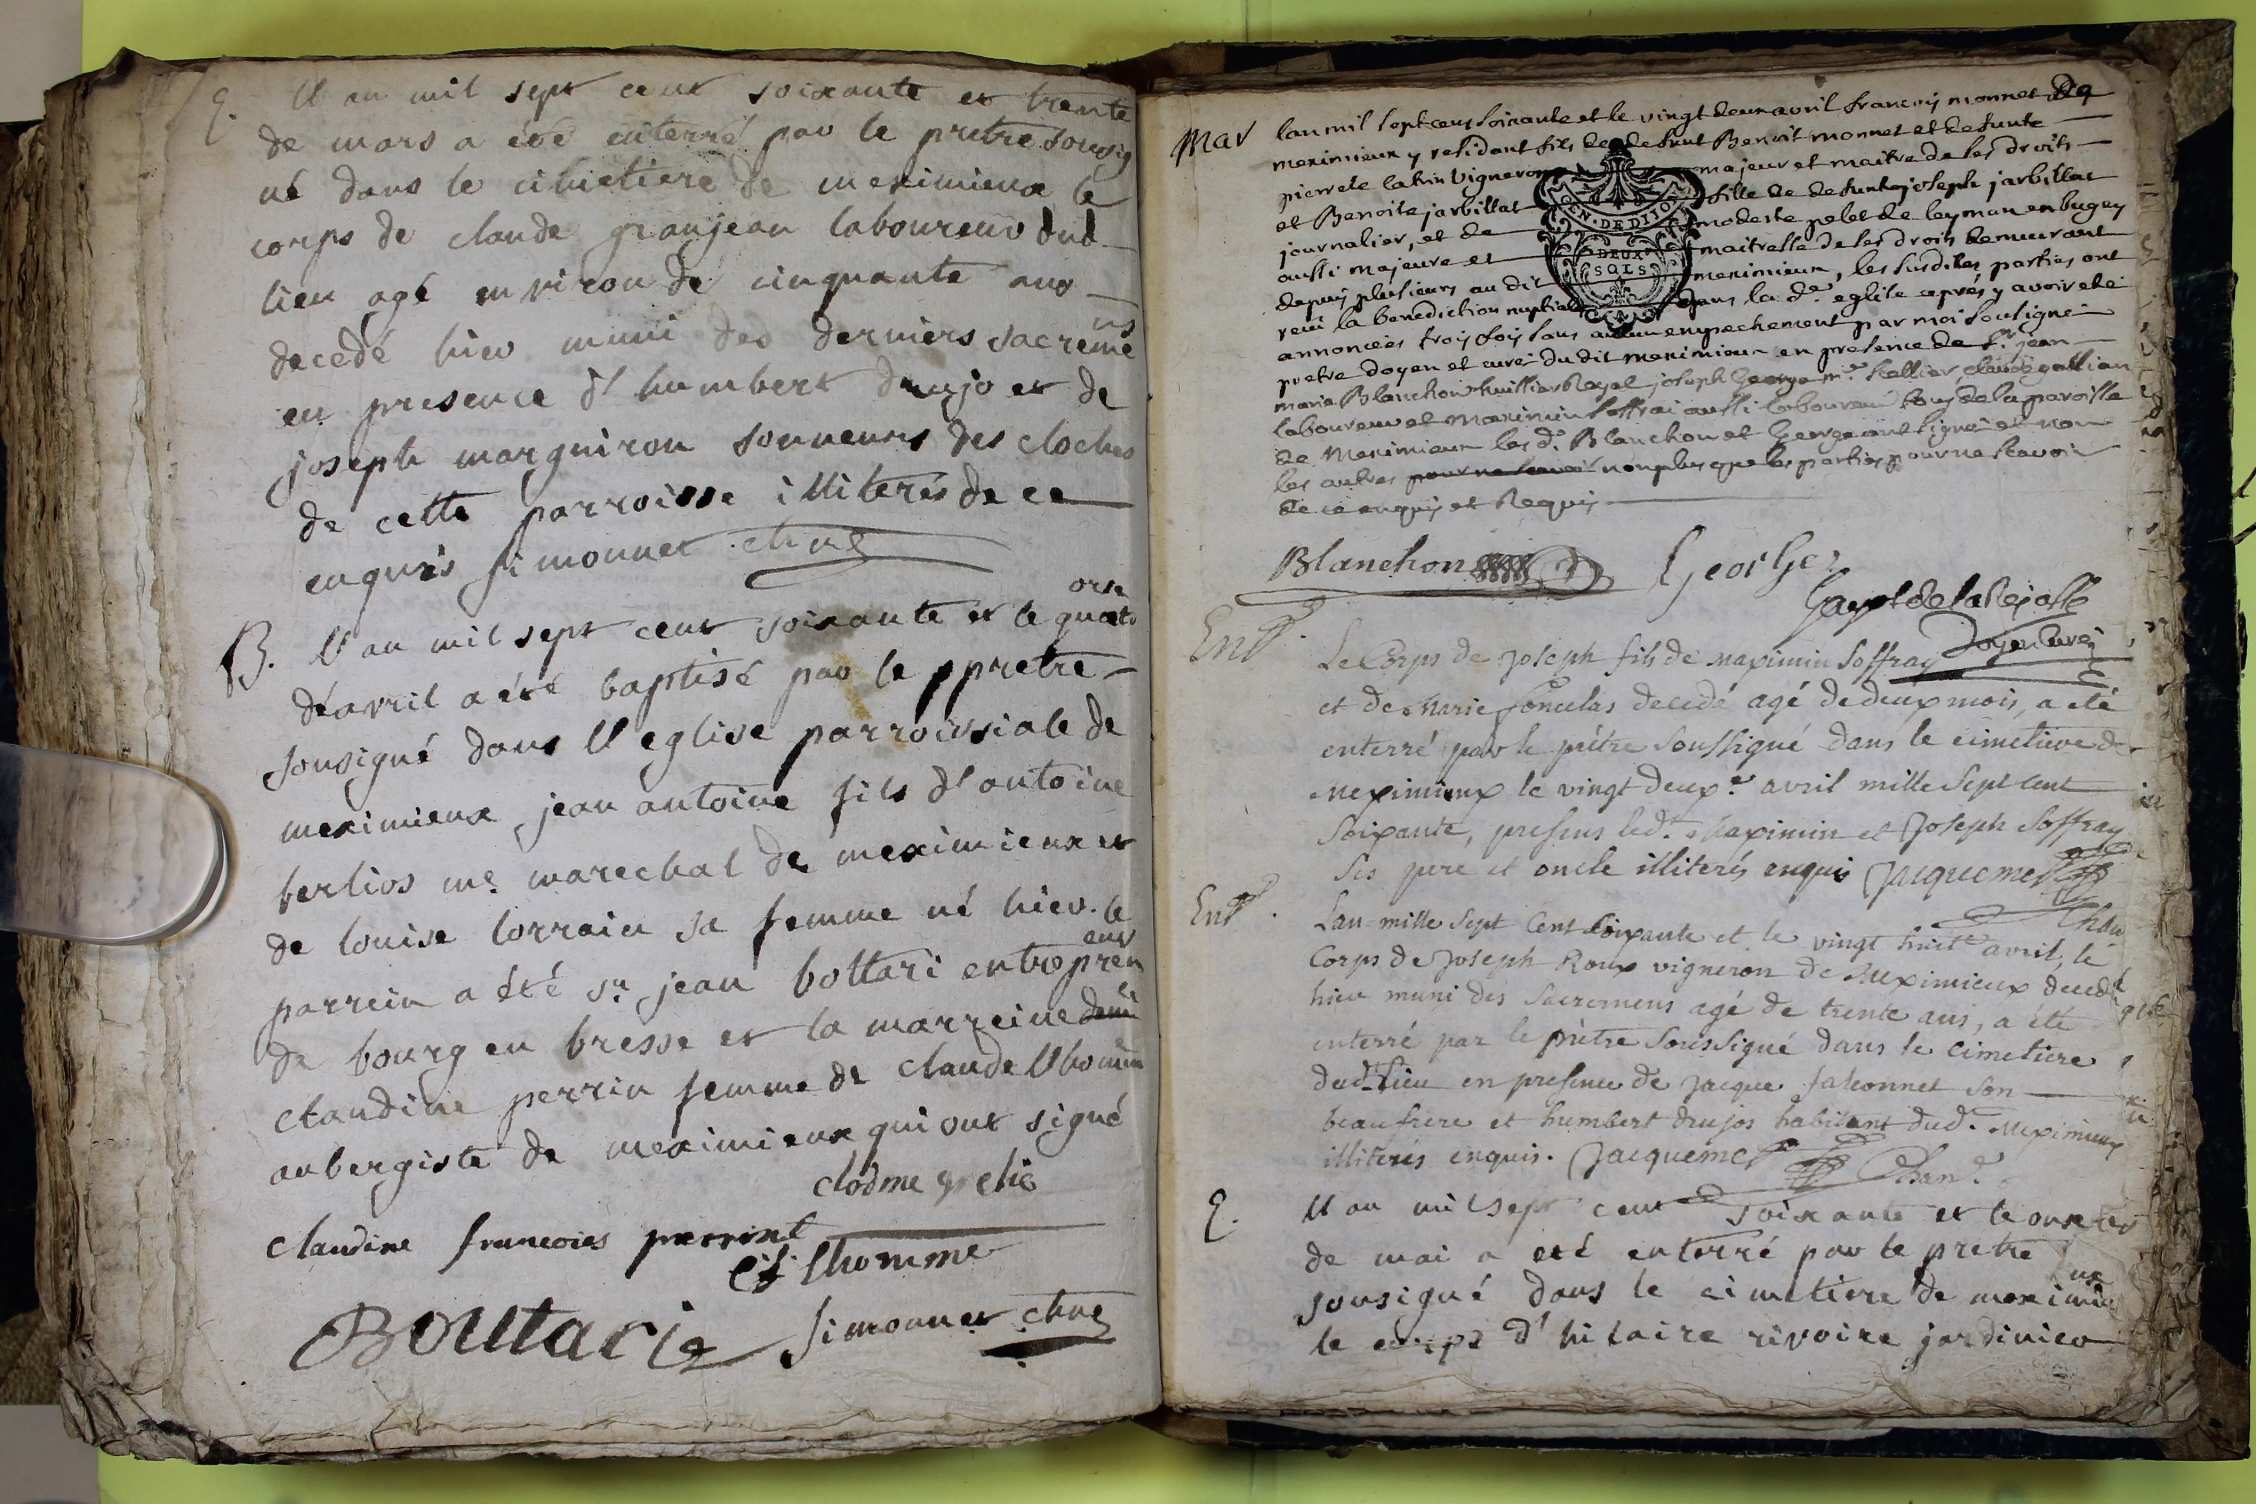 E. l'an mil sept cent soixante et trente
de mars a été enterré par le prêtre sousig
né dans le cimetiere de meximieux le
corps de claude granjean laboureur dud
lieu agé environ de cinquante ans
decedé hier muni des derniers sacreme
nts
en presence d'humbert drujo et de
joseph marguiron sonneurs des cloches
de cette parroisse illiterés de ce
enquis Simonnet chne
B. l'an mil sept cent soixante et le quat
orse
d'avril a été baptisé par le pretre
sousigné dans l'eglise parroissiale de
meximieux jean antoine fils d'antoine
berlios me. marechal de meximieux et
de louise lorrain sa femme né hier. le
parrein a été sr jean bottari entrepren
eur
de bourg en bresse et la marreine
claudine perrin femme de claude lhomm
aubergiste de meximieux qui ont signé
claudine francoies perrint
cl. lhomme
Boutarie Simonnet chne
Mar lan mil sept cens soixante et le vingt deux avril francois monnet de
meximieux y residant fils de defunt Benoit monnet et defunte
pierrete cabrin vigneron majeur et maitre de ses droits
et Benoite jarbillat fille de defunt joseph jarbillat
journalier, et de modeste pelet de leyman en bugey
aussi majeure et maitresse de ses droits demeurant
depuis plusieurs au dit meximieux, les susdites parties ont
EN. DE DIJON
DEUX
SOLS
recu la benediction nuptiale dans la de. eglise apres y avoir eté
annoncées trois fois sans aucun empechement par moi sousigné
pretre doyen et curé du dit meximieux en presence de sr. jean
marie Blanchon huissier Royal joseph George me. sellier, claude gallian
laboureur et maximin soffrai aussi laboureur tous de la paroisse
de Meximieux les d. Blanchon et George ont signé et non
les autres pour ne scavoir non plus que les parties pour ne scavoir
de ce enquis et Requis
Blanchon George
Doyen Curé
Ent. Le Corps de Joseph fils de maximin Soffray
et de Marie decedé agé de deux mois, a été
enterré par le prêtre soussigné dans le cimetiere de
Meximieux le vingt deuxe. avril mille sept cent
soixante, presens led. Maximin et Joseph Soffray
ses pere et oncle illiterés enquis Jacquemet
Chan
Ent. L'an mille sept Cent soixante et le vingt huite avril, le
Corps de Joseph Roux vigneron de Meximieux decedé
hier muni des Sacremens agé de trente ans, a été
enterré par le prêtre Soussigné dans le Cimetiere
dud. lieu en presence de Jacque falconnet son
beaufrere et humbert drujos habitant dud. Meximieux
illiterés enquis. Jacquemet Chan.
E. l'an mil sept cent soixante et le onse
de mai a eté enterré par le pretre
sousigné dans le cimetiere de meximie
ux
le corps d'hilaire rivoire jardinier